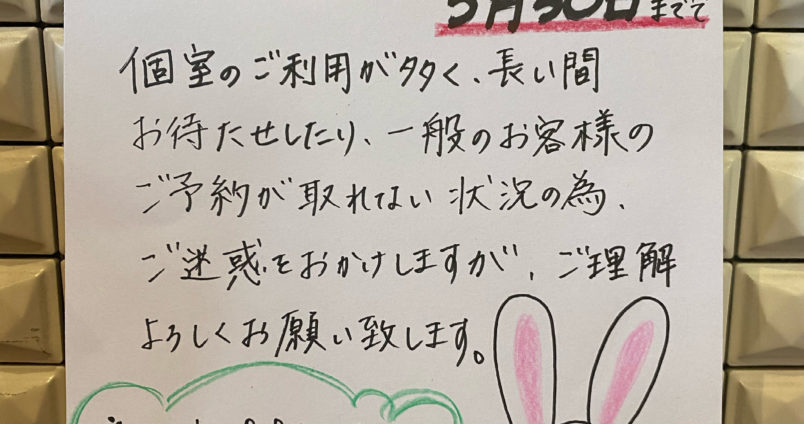 月30日までで
個室のご利用が多く、長い間
お待たせしたり、一般のお客様の
ご予約が取れない状況の為、
ご迷惑をおかけしますが、ご理解
よろしくお願い致します。